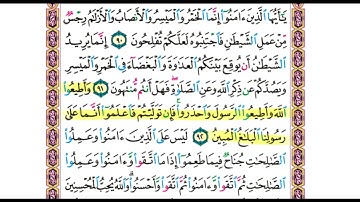 يَـٰٓأَيُّهَا ٱلَّذِينَ ءَامَنُوٓا۟ إِنَّمَا ٱلْخَمْرُ وَٱلْمَيْسِرُ وَٱلْأَنصَابُ وَٱلْأَزْلَـٰمُ رِجْسٌ
مِّنْ عَمَلِ ٱلشَّيْطَـٰنِ فَٱجْتَنِبُوهُ لَعَلَّكُمْ تُفْلِحُونَ ٩٠ إِنَّمَا يُرِيدُ
ٱلشَّيْطَـٰنُ أَن يُوقِعَ بَيْنَكُمُ ٱلْعَدَٰوَةَ وَٱلْبَغْضَآءَ فِى ٱلْخَمْرِ وَٱلْمَيْسِرِ
وَيَصُدَّكُمْ عَن ذِكْرِ ٱللَّهِ وَعَنِ ٱلصَّلَوٰةِ ۖ فَهَلْ أَنتُم مُّنتَهُونَ ٩١ وَأَطِيعُوا۟
ٱللَّهَ وَأَطِيعُوا۟ ٱلرَّسُولَ وَٱحْذَرُوا۟ ۚ فَإِن تَوَلَّيْتُمْ فَٱعْلَمُوٓا۟ أَنَّمَا عَلَىٰ
رَسُولِنَا ٱلْبَلَـٰغُ ٱلْمُبِينُ ٩٢ لَيْسَ عَلَى ٱلَّذِينَ ءَامَنُوا۟ وَعَمِلُوا۟
ٱلصَّـٰلِحَـٰتِ جُنَاحٌ فِيمَا طَعِمُوٓا۟ إِذَا مَا ٱتَّقَوا۟ وَّءَامَنُوا۟ وَعَمِلُوا۟
ٱلصَّـٰلِحَـٰتِ ثُمَّ ٱتَّقَوا۟ وَّءَامَنُوا۟ ثُمَّ ٱتَّقَوا۟ وَّأَحْسَنُوا۟ ۗ وَٱللَّهُ يُحِبُّ ٱلْمُحْسِنِينَ